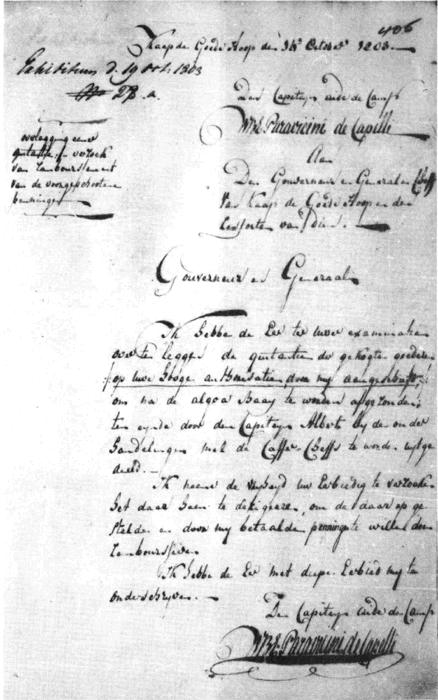 406
Kaap de Goede Hoop den 14 October 1803.
Exhibitum d. 19 Oct. 1803
No 28. a.
Den Capiteyn aide de Camp
W. B. E. Paravicini de Capelli
Aan
Den Gouverneur en Generaal en Cheff
van Kaap de Goede Hoop en den
van dien.
overlegging eener
quitantie, en verzoek
van rembourssement
van de voorgeschotene
penningen
Gouverneur en Generaal
Ik hebbe de Eer ter uwer examinatie
over te leggen de quitantie de gekogte goederen
op uwe hooge authorisatie, door my aangeschaft
om na de algoa Baay te worden afgezonden
ten eynde door den Capiteyn Alberti by de onder
handelingen met de Caffer Cheffs te worde uytge
deeld.
Ik neeme de vryheyd uw Eerbiedig te verzoeken
het daar heen te dirigeren, om de daar op ge
stelde en door my betaalde penninge te willen doen
rembourssren
Ik hebbe de Eer met diepe Eerbied my te
onderschryven.
Den Capiteyn aide de Camp
W. B. E. Paravicini de Capelli